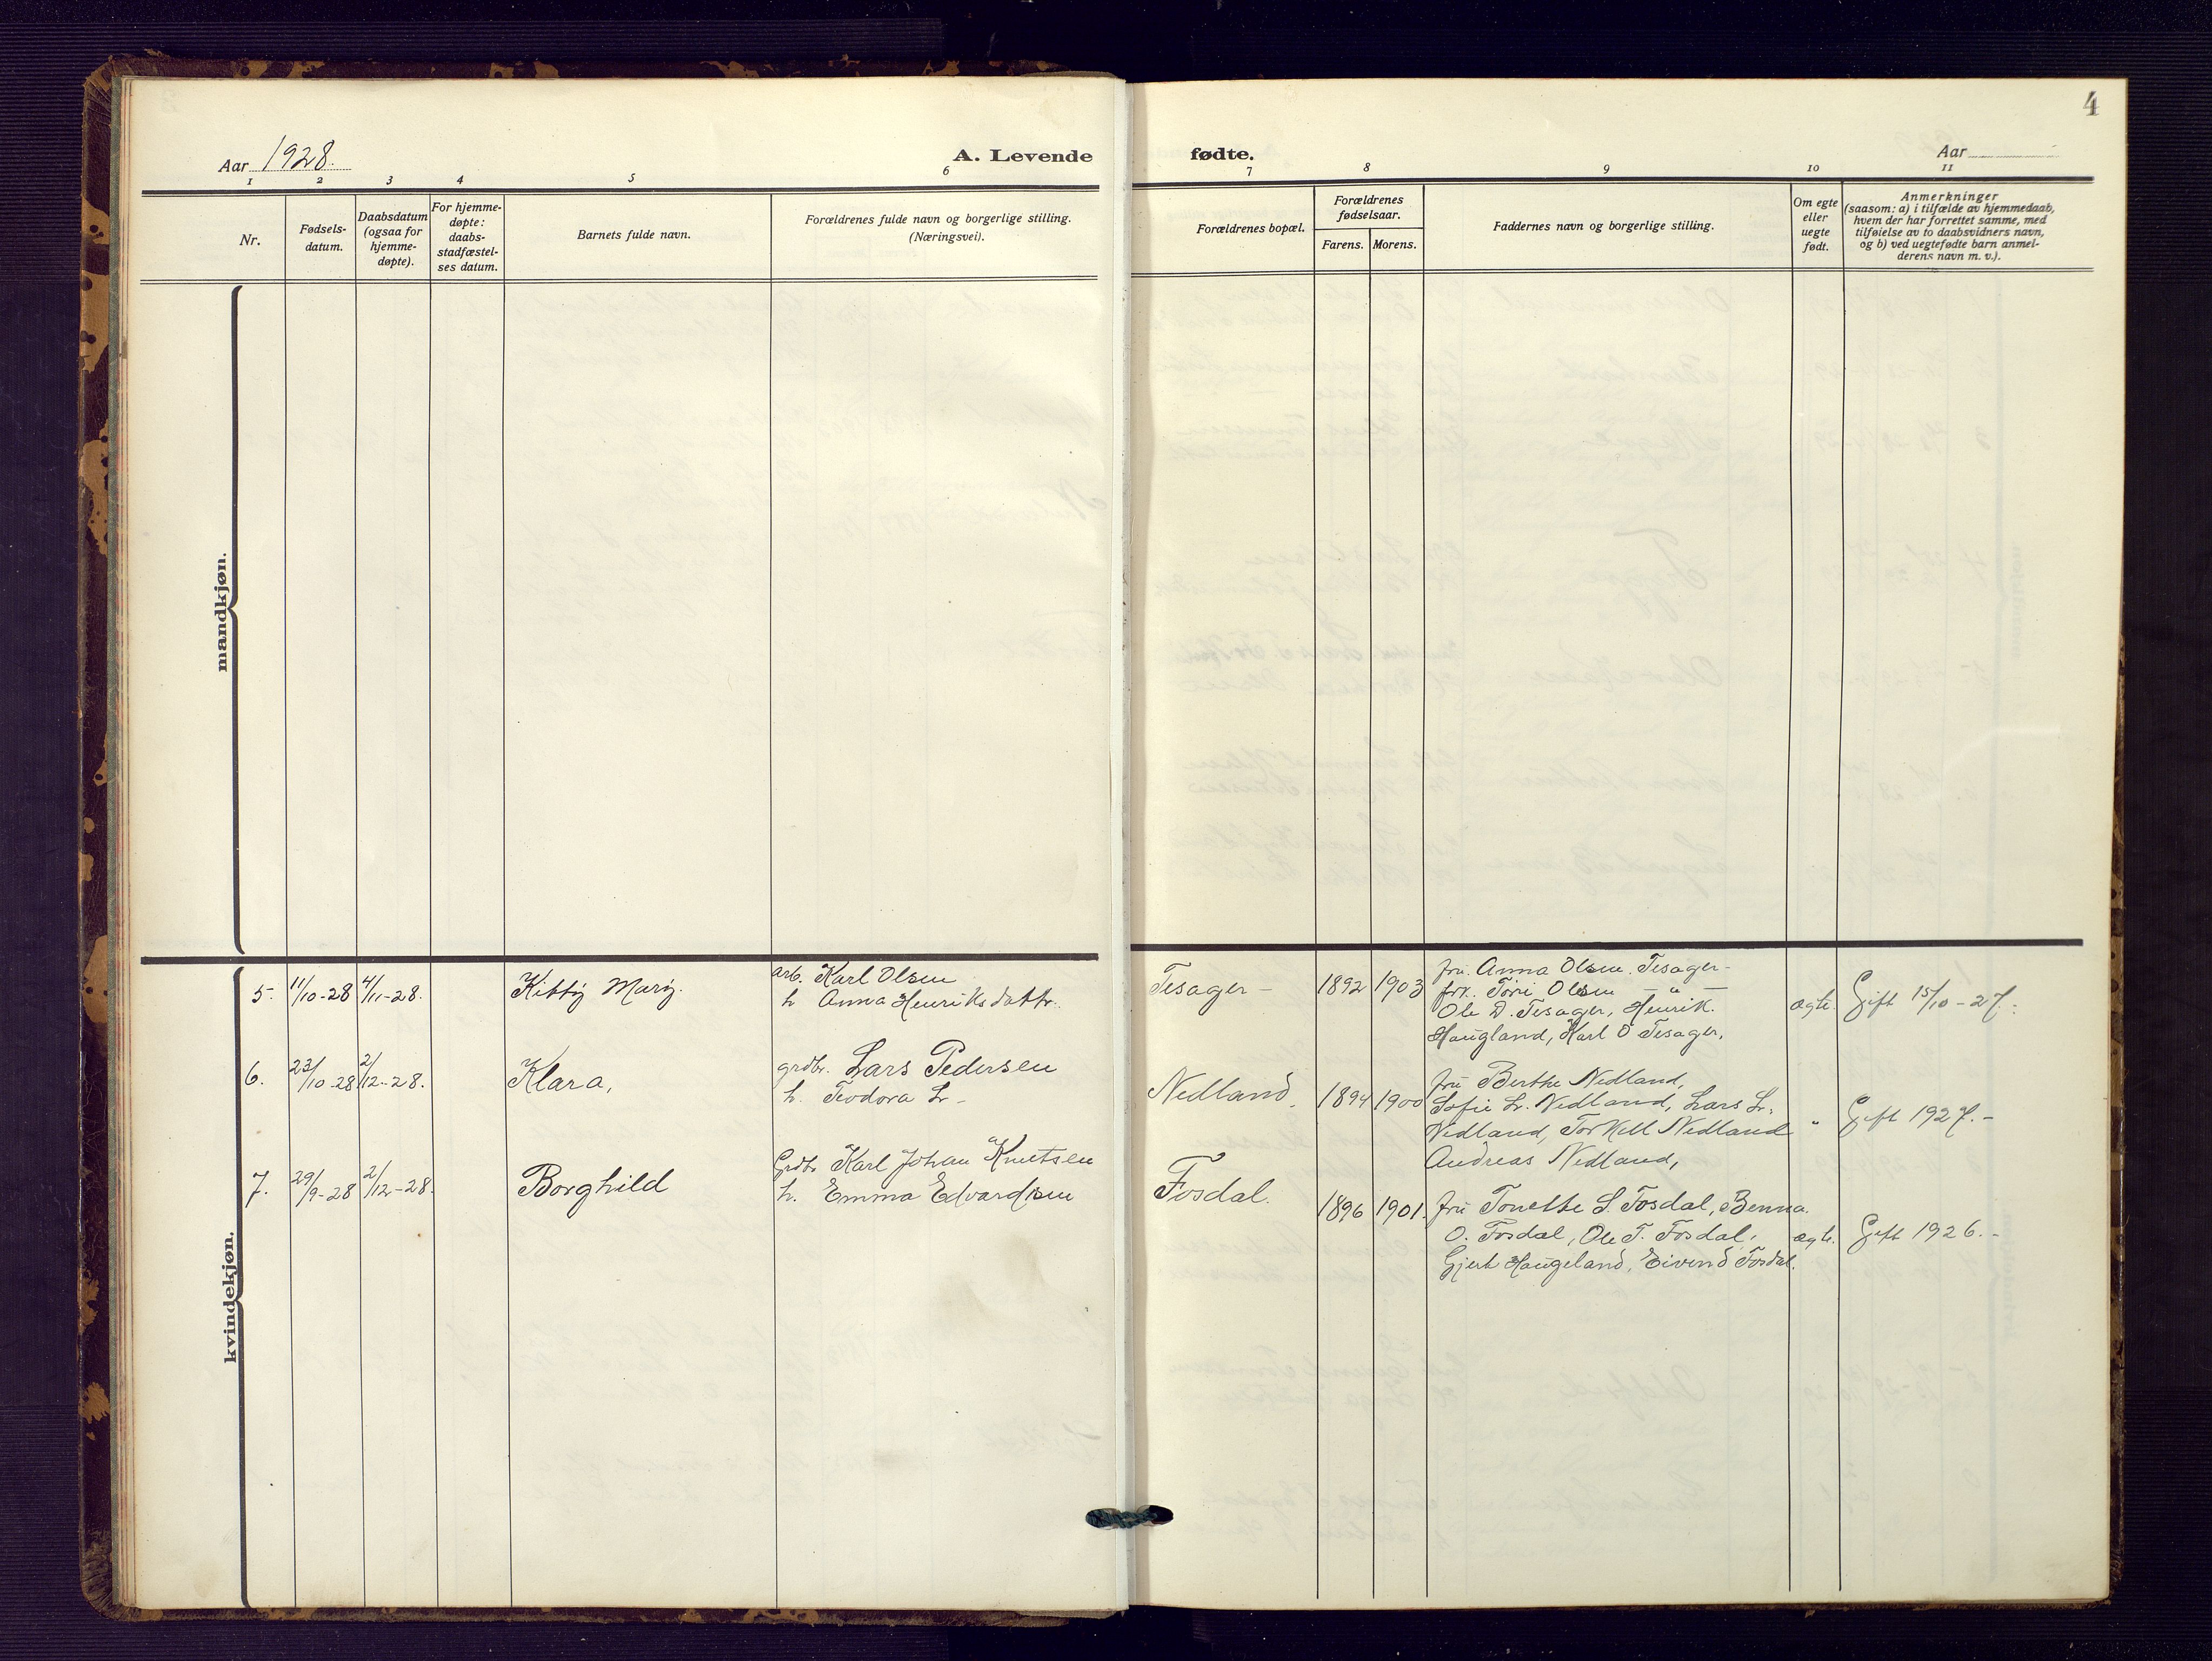 4
Aar 1928.
A. Levende
fødte.
Aar
1 2 3 4 5 6 7 8 9 10 11
Nr.
Fødsels-
datum.
Daabsdatum
(ogsaa for
hjemme-
døpte).
For hjemme-
døpte:
daabs-
stadfæstel-
ses datum.
Barnets fulde navn.
Forældrenes fulde navn og borgerlige stilling.
(Næringsvei).
Forældrenes bopæl.
Forældrenes
fødselsaar.
Farens. Morens.
Faddernes navn og borgerlige stilling.
Om egte
eller
uegte
født.
Anmerkninger
(saasom: a) i tilfælde av hjemmedaab,
hvem der har forrettet samme, med
tilføielse av to daabsvidners navn,
og b) ved uegtefødte barn anmel-
derens navn m. v.).
mandkjøn.
kvindekjøn.
5. 11/10-28 4/11-28. Kitty Mary.
arb. Karl Olsen
h Anna Henriksdattr.
Tesager - 1892 1903
fru. Anna Olsen. Tesager-
frk. Töri Olsen - " -
Ole D. Tesager, Henrik.
Haugland, Karl O Tesager.
ægte. Gift 15/10-27.
6. 23/10-28 2/12-28. Klara,
grdbr. Lars Pedersen
h. Teodora L-
Nedland. 1894 1900
fru Berthe Nedland,
Sofie L. Nedland, Lars L.
Nedland, Torkell Nedland
Andreas Nedland,
" Gift 1927.-
7. 29/9-28 2/12-28. Borghild
Grdbr Karl Johan Knutsen
h. Emma Edvardsen
Fosdal. 1896 1901.
fru Tonette S. Fosdal, Benna.
O. Fosdal, Ole T. Fosdal,
Gjert Haugeland, Eivend Fosdal.
ægte. Gift 1926.-